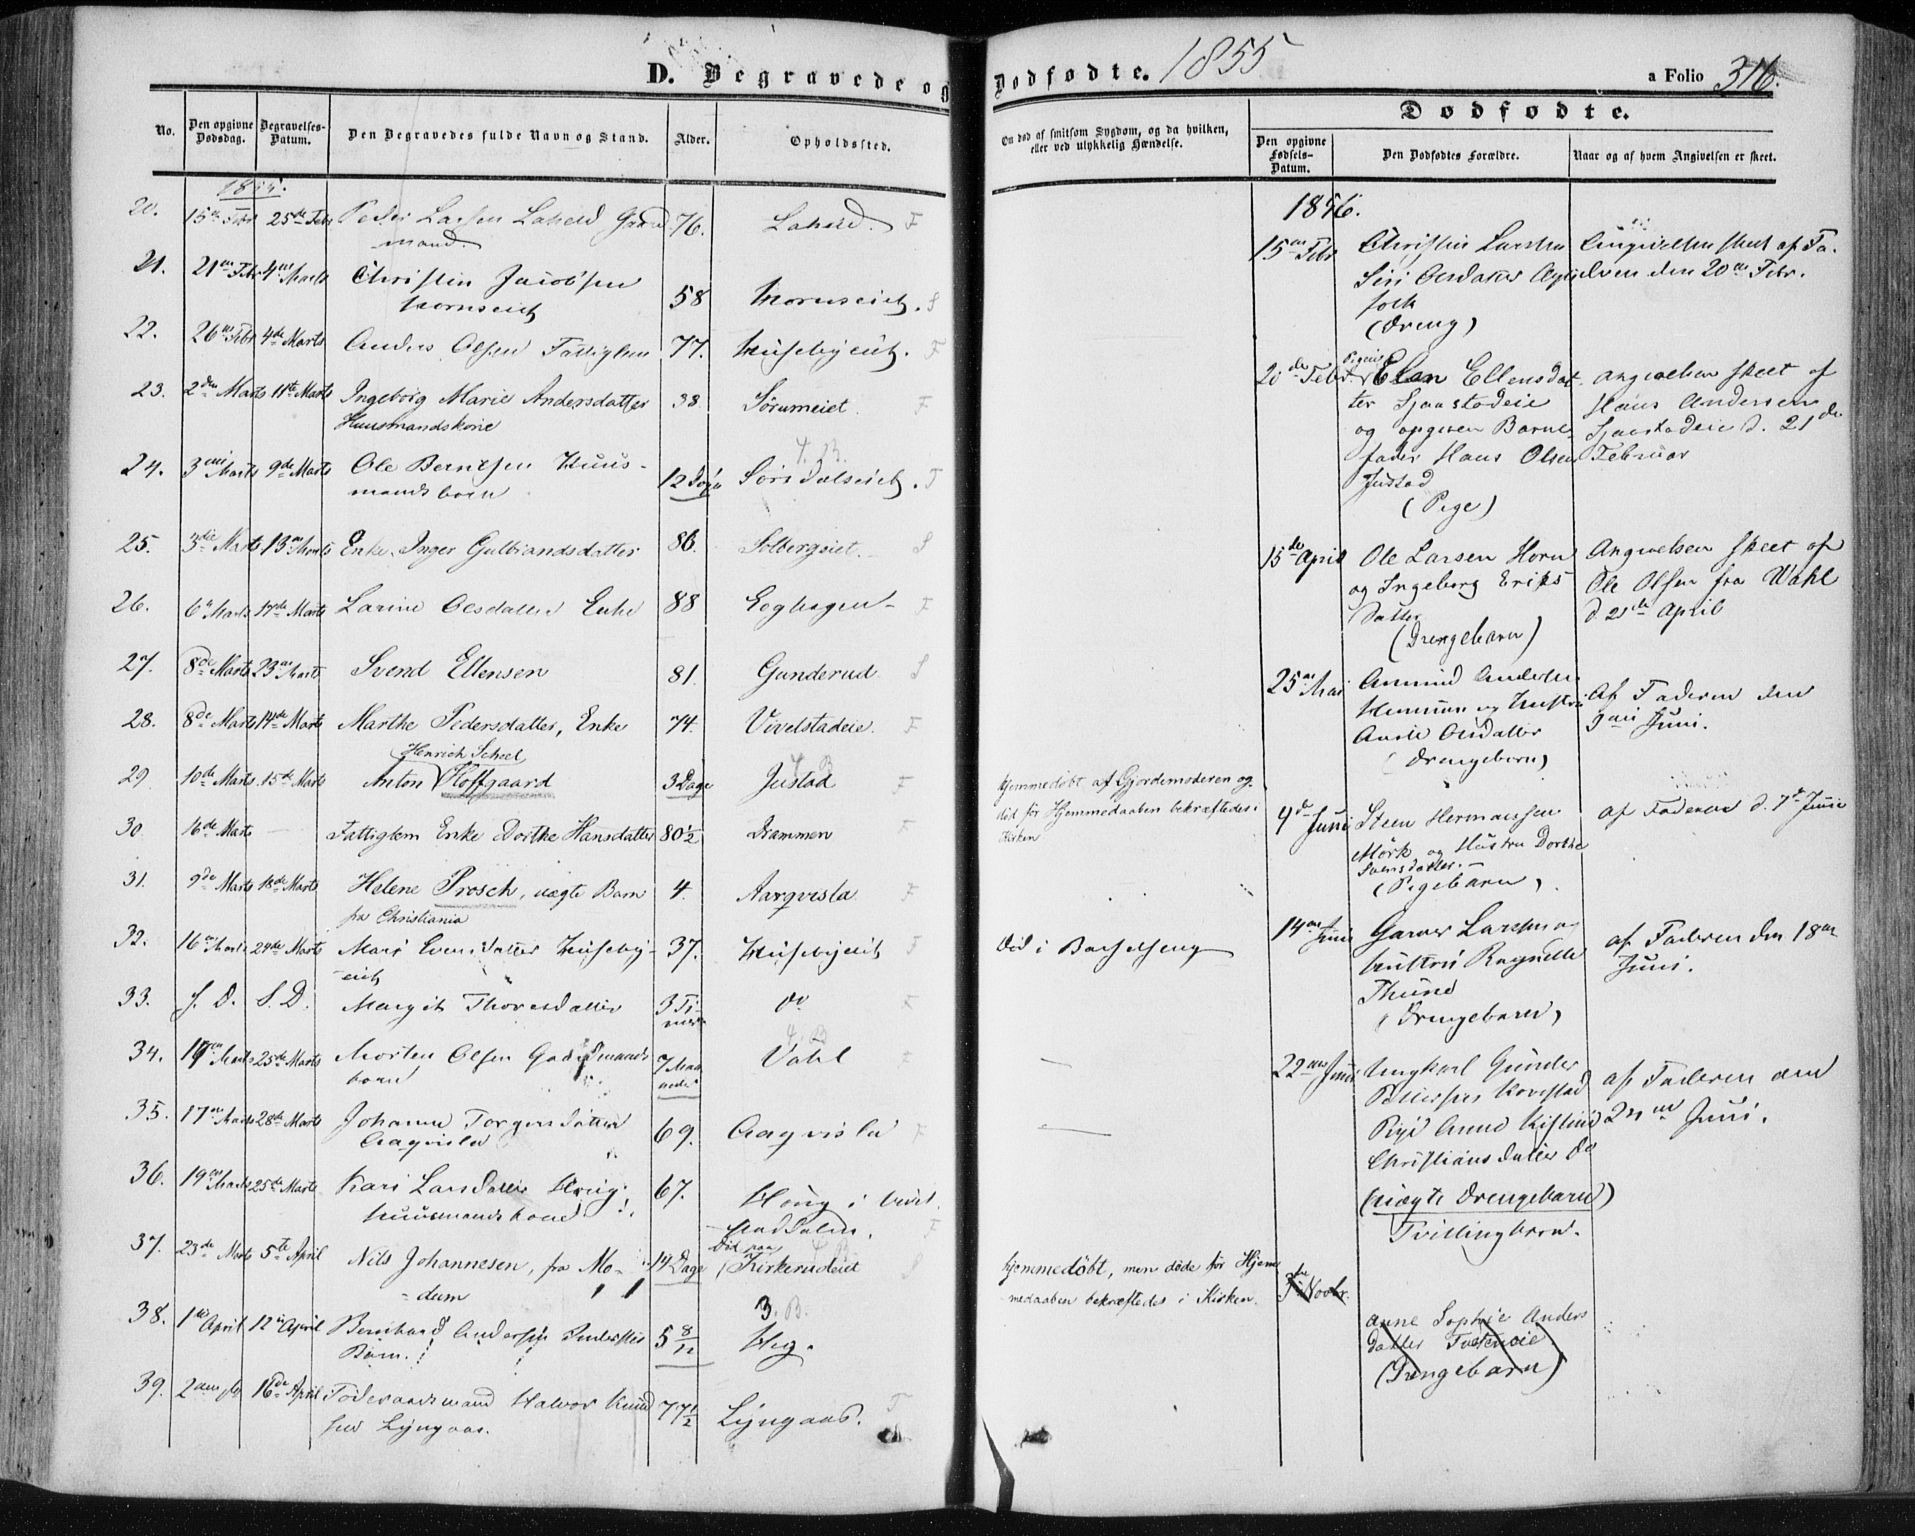 D. Begravede og Dødfødte. 1855
a Folio 316.
No.
Den opgivne Dødsdag.
Begravelses-Datum.
Den Begravedes fulde Navn og Stand.
Alder.
Opholdssted.
Om død af smitsom Sygdom, og da hvilken, eller ved ulykkelig Hændelse.
Dødfødte.
Den opgivne Fødsels-Datum.
Den Dødfødtes Forældre.
Naar og af hvem Angivelsen er skeet.
20. 15de Febr 25de Febr Peder Larsen Gaard 76. F
mand
21. 21de Febr 4de Marts Christin Jacobsen 58 Hornseiet. S
Hornseiet
22. 26de Febr 4de Marts Anders Olsen Fattiglem 77. Husebyeiet. F
23. 2den Marts 11te Marts Ingeborg Marie Andersdatter 38. Sørumeiet. F
Huusmandskone
24. 3die Marts 9de Marts Ole Berntsen Huus- 12 Dage Sørsdalseiet. F
mandsbarn
25. 3die Marts 13de Marts Enke Inger Gulbrandsdatter 86. Solbergeiet. S
26. 6te Marts 14de Marts Larine Olsdatter Enke 88 F
27. 8de Marts 23de Marts Svend Ellensen 81. Gunderud S
28. 8de Marts 14de Marts Marthe Pedersdatter, Enke 74. Vivelstadeie. F
Henrich Scheel
29 10de Marts 15de Marts Anton Hoffgaard 3 Dage Justad F
hjemmedøbt af Gjordemoderen og
død før Hjemmedaaben bekræftedes i
Kirken
30. 16de Marts — Fattiglem Enke Dorthe Hansdatter 80½ Drammen F
31. 9de Marts 18de Marts Helene Prosch, uægte Barn 4. Aaqvisla F
fra Christiania
32. 16de Marts 24de Marts Mari Evensdatter Huseby- 37. Husebyeiet F
eiet
Død i Barselseng
33. S. D. S. D. Margit Thoresdatter 3 Ti- do F
mer
34. 25de Marts Morten Olsen Gaardmands 7 Maa Vahl F
barn neder
35. 17de Marts 28de Marts Johanne Torgersdatter 69. Aaqvisla F
Aaqvisla
36. 19de Marts 25de Marts Kari Larsdatter Houg 67. Houg i Vivel
Huusmandskone staddalen. F
37. 23de Marts 5te April Nils Johannesen, fra Mo- 14 Dage Død paa Kirkerudeiet S
dum
hjemmedøbt, men døde før Hjem
medaaben bekræftedes i Kirken.
38. 1ste April 12te April Bernhard Andersen 5 8/12 Heg.
Barn.
39. 16de April Føderaadsmand Halvor Knud 77½ Lyngaas. F
sen Lyngaas.
1856.
15de Febr Christen Larsen Angivelsen skeet af Fa-
Siri Olsdatter Ægte deren den 20de Febr.
folk
(Dreng)
20de Febr. Pigen Elen Ellensdat- Angivelsen skeet af
ter Sjaastadeie Hans Andersen
og opgiven Barne- Sjaastadeie d. 21de
fader Hans Olsen Februar
Justad
(Pige)
15de April Ole Larsen Horn Angivelsen skeet af
og Ingeborg Eriks Ole Olsen fra Wahl
datter d. 21de April
(Drengebarn)
25de Mai Amund Andersen Af Faderen den
og Hustru 9de Juni.
Anne Olsdatter
(Drengebarn)
4de Juni Steen Hermansen af Faderen d. 7de Juni
Mörk og Hustru Dorthe
Svensdatter.
(Pigebarn).
14de Juni Larsen og af Faderen den 18de
Hustru Ragnille Juni.
Thune
(Drengebarn)
22de Juni Ungkarl Gunder af Faderen den
Pedersen 24de Juni.
Pige Anne Kistine
Christiansdatter do
(uægte Drengebarn)
Tvillingbarn.
Novbr.
Anne Sophie Anders
datter
(Drengebarn)